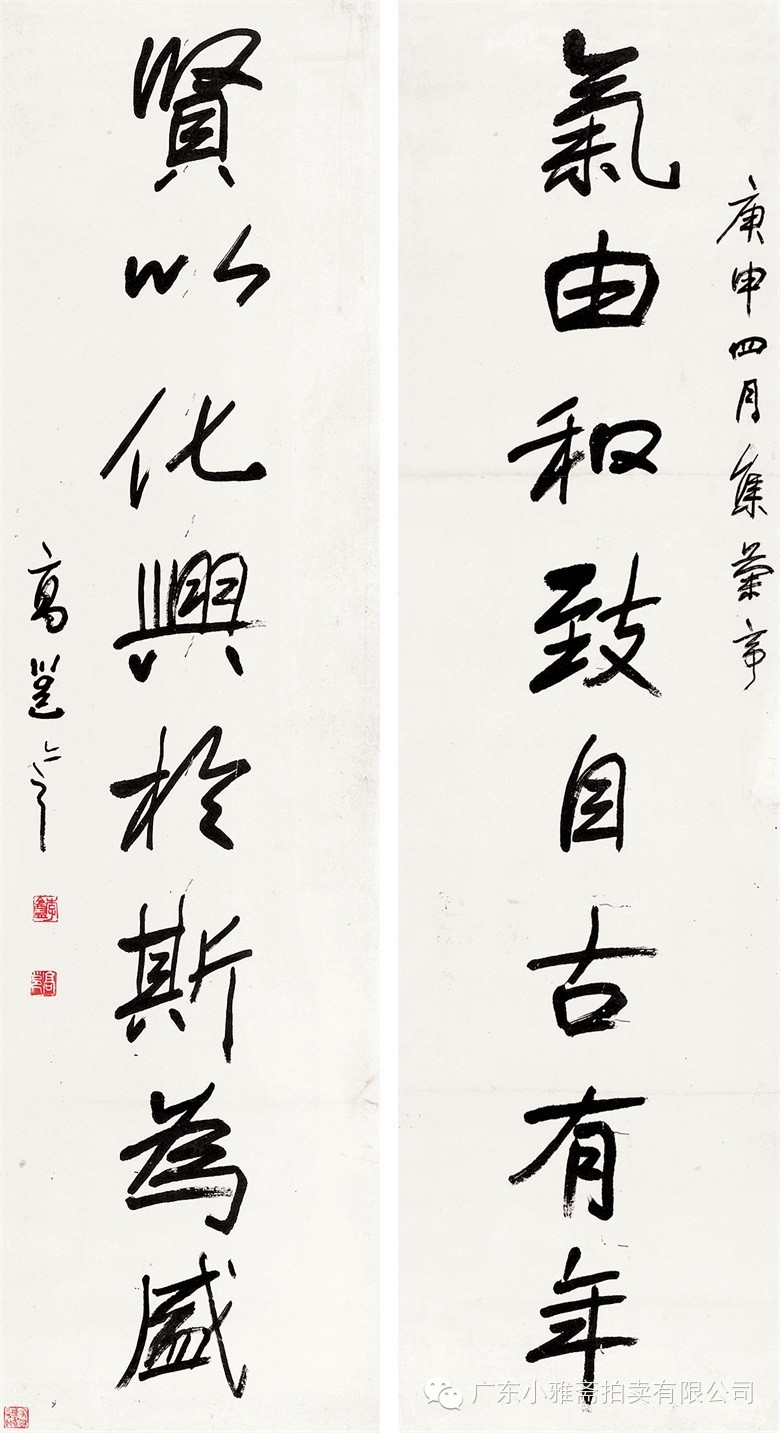 庚申四月集蘭亭
氣由和致自古有年
賢以化興於斯為盛
高邕
广东小雅斋拍卖有限公司